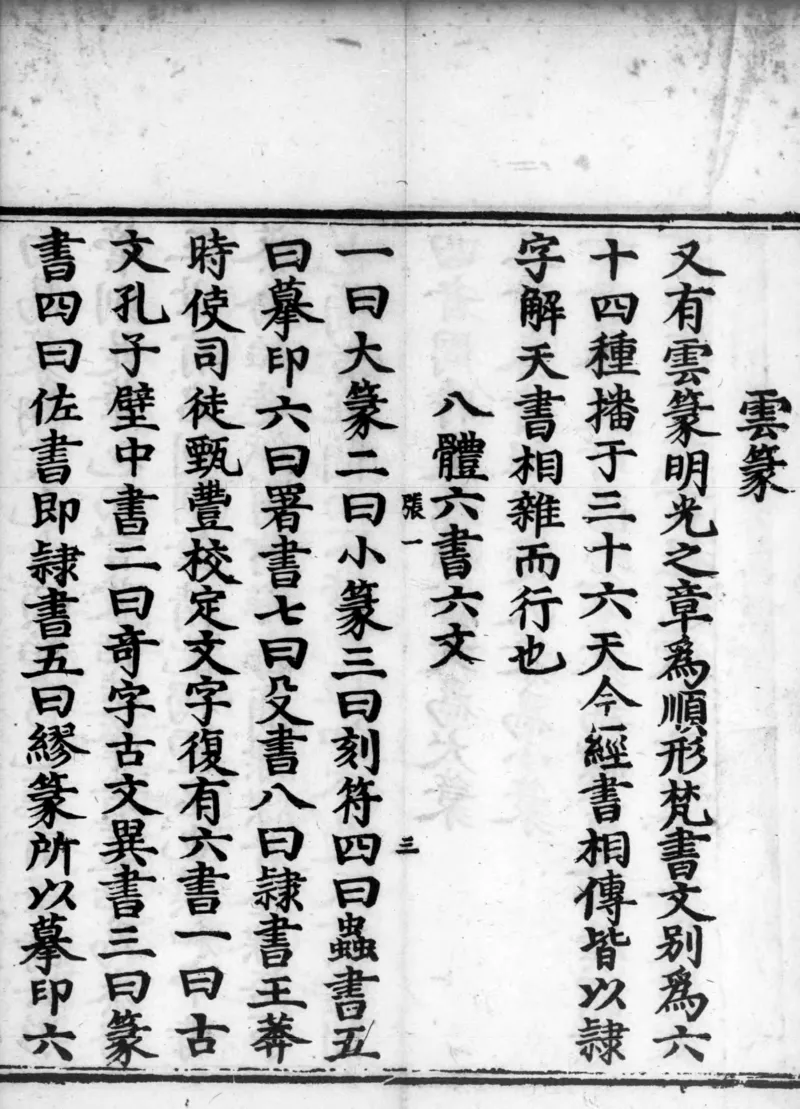 雲篆
又有雲篆明光之章爲順形梵書文别爲六
十四種播于三十六天今經書相傳皆以隷
字解天書相雜而行也
八體六書六文
張一
三
一曰大篆二曰小篆三曰刻符四曰蟲書五
曰摹印六曰署書七曰殳書八曰隷書王莽
時使司徒甄豐校定文字復有六書一曰古
文孔子壁中書二曰竒字古文異書三曰篆
書四曰佐書即隷書五曰繆篆所以摹印六